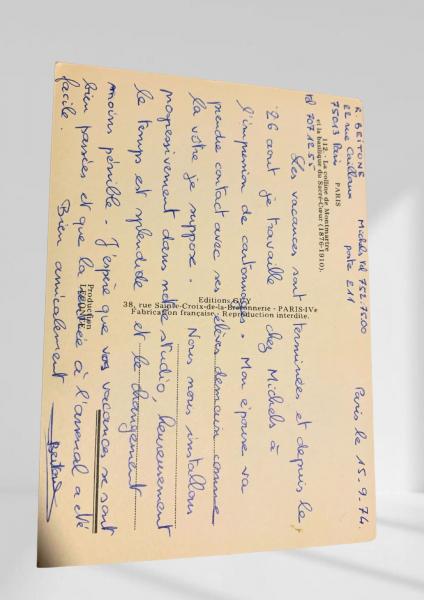 R. BEITONE Michels tel 752.75.00
22 rue Caillaux poste 211
75013 Paris Paris le 15-9-74.
tel 707.12.56
PARIS
112. - La colline de Montmartre
et la basilique du Sacré-Cœur (1876-1910).
Les vacances sont terminées et depuis le
26 aout je travaille chez Michels à
l'impression de cartonnages. Mon épouse va
prendre contact avec ses élèves demain comme
la votre je suppose. Nous nous installons
progressivement dans notre studio, heureusement
le temps est splendide et le changement
moins pénible. J'espère que vos vacances se sont
bien passées et que la rentrée à l'arsenal a été
facile. Bien amicalement
Beitone
Editions GUY
38, rue Sainte-Croix-de-la-Bretonnerie - PARIS-IVe
Fabrication française - Reproduction interdite.
Production